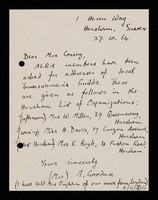 1 Heron Way
Horsham, Sussex
27.10.64
Dear Mrs Cossey,
ALRA members have been
asked for addresses of local
Townswomen's Guilds. These
are given as follows in the
Horsham List of Organisations:
Mrs W. Miller, 29 Greenway,
Horsham
Mrs H. Davis, 17 Avenue,
Horsham
Mrs E. Boyle, 4 Road
Horsham
Yours sincerely
(Mrs) M. Goodace
(I have told Mrs of our move from London)